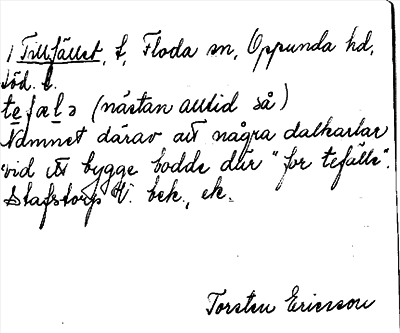 1 Tillfället, t, Floda sn, Oppunda hd,
Söd. l.
tefælə (nästan alltid så)
Namnet därav att några dalkarlar
vid ett bygge bodde där "for tefälle".
Stafstorp V. bek., ek.
Torsten Ericsson